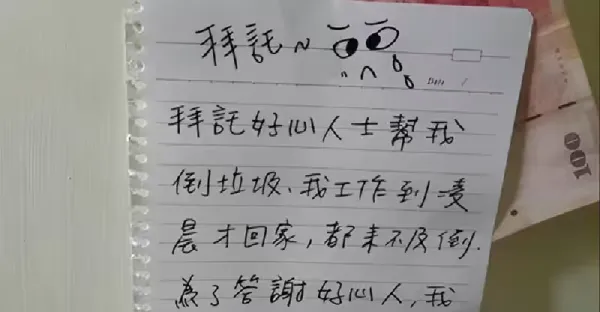 拜託~
Date /
拜託好心人士幫我
倒垃圾、我工作到凌
晨才回家,都來不及倒.
為了答謝好心人,我
100